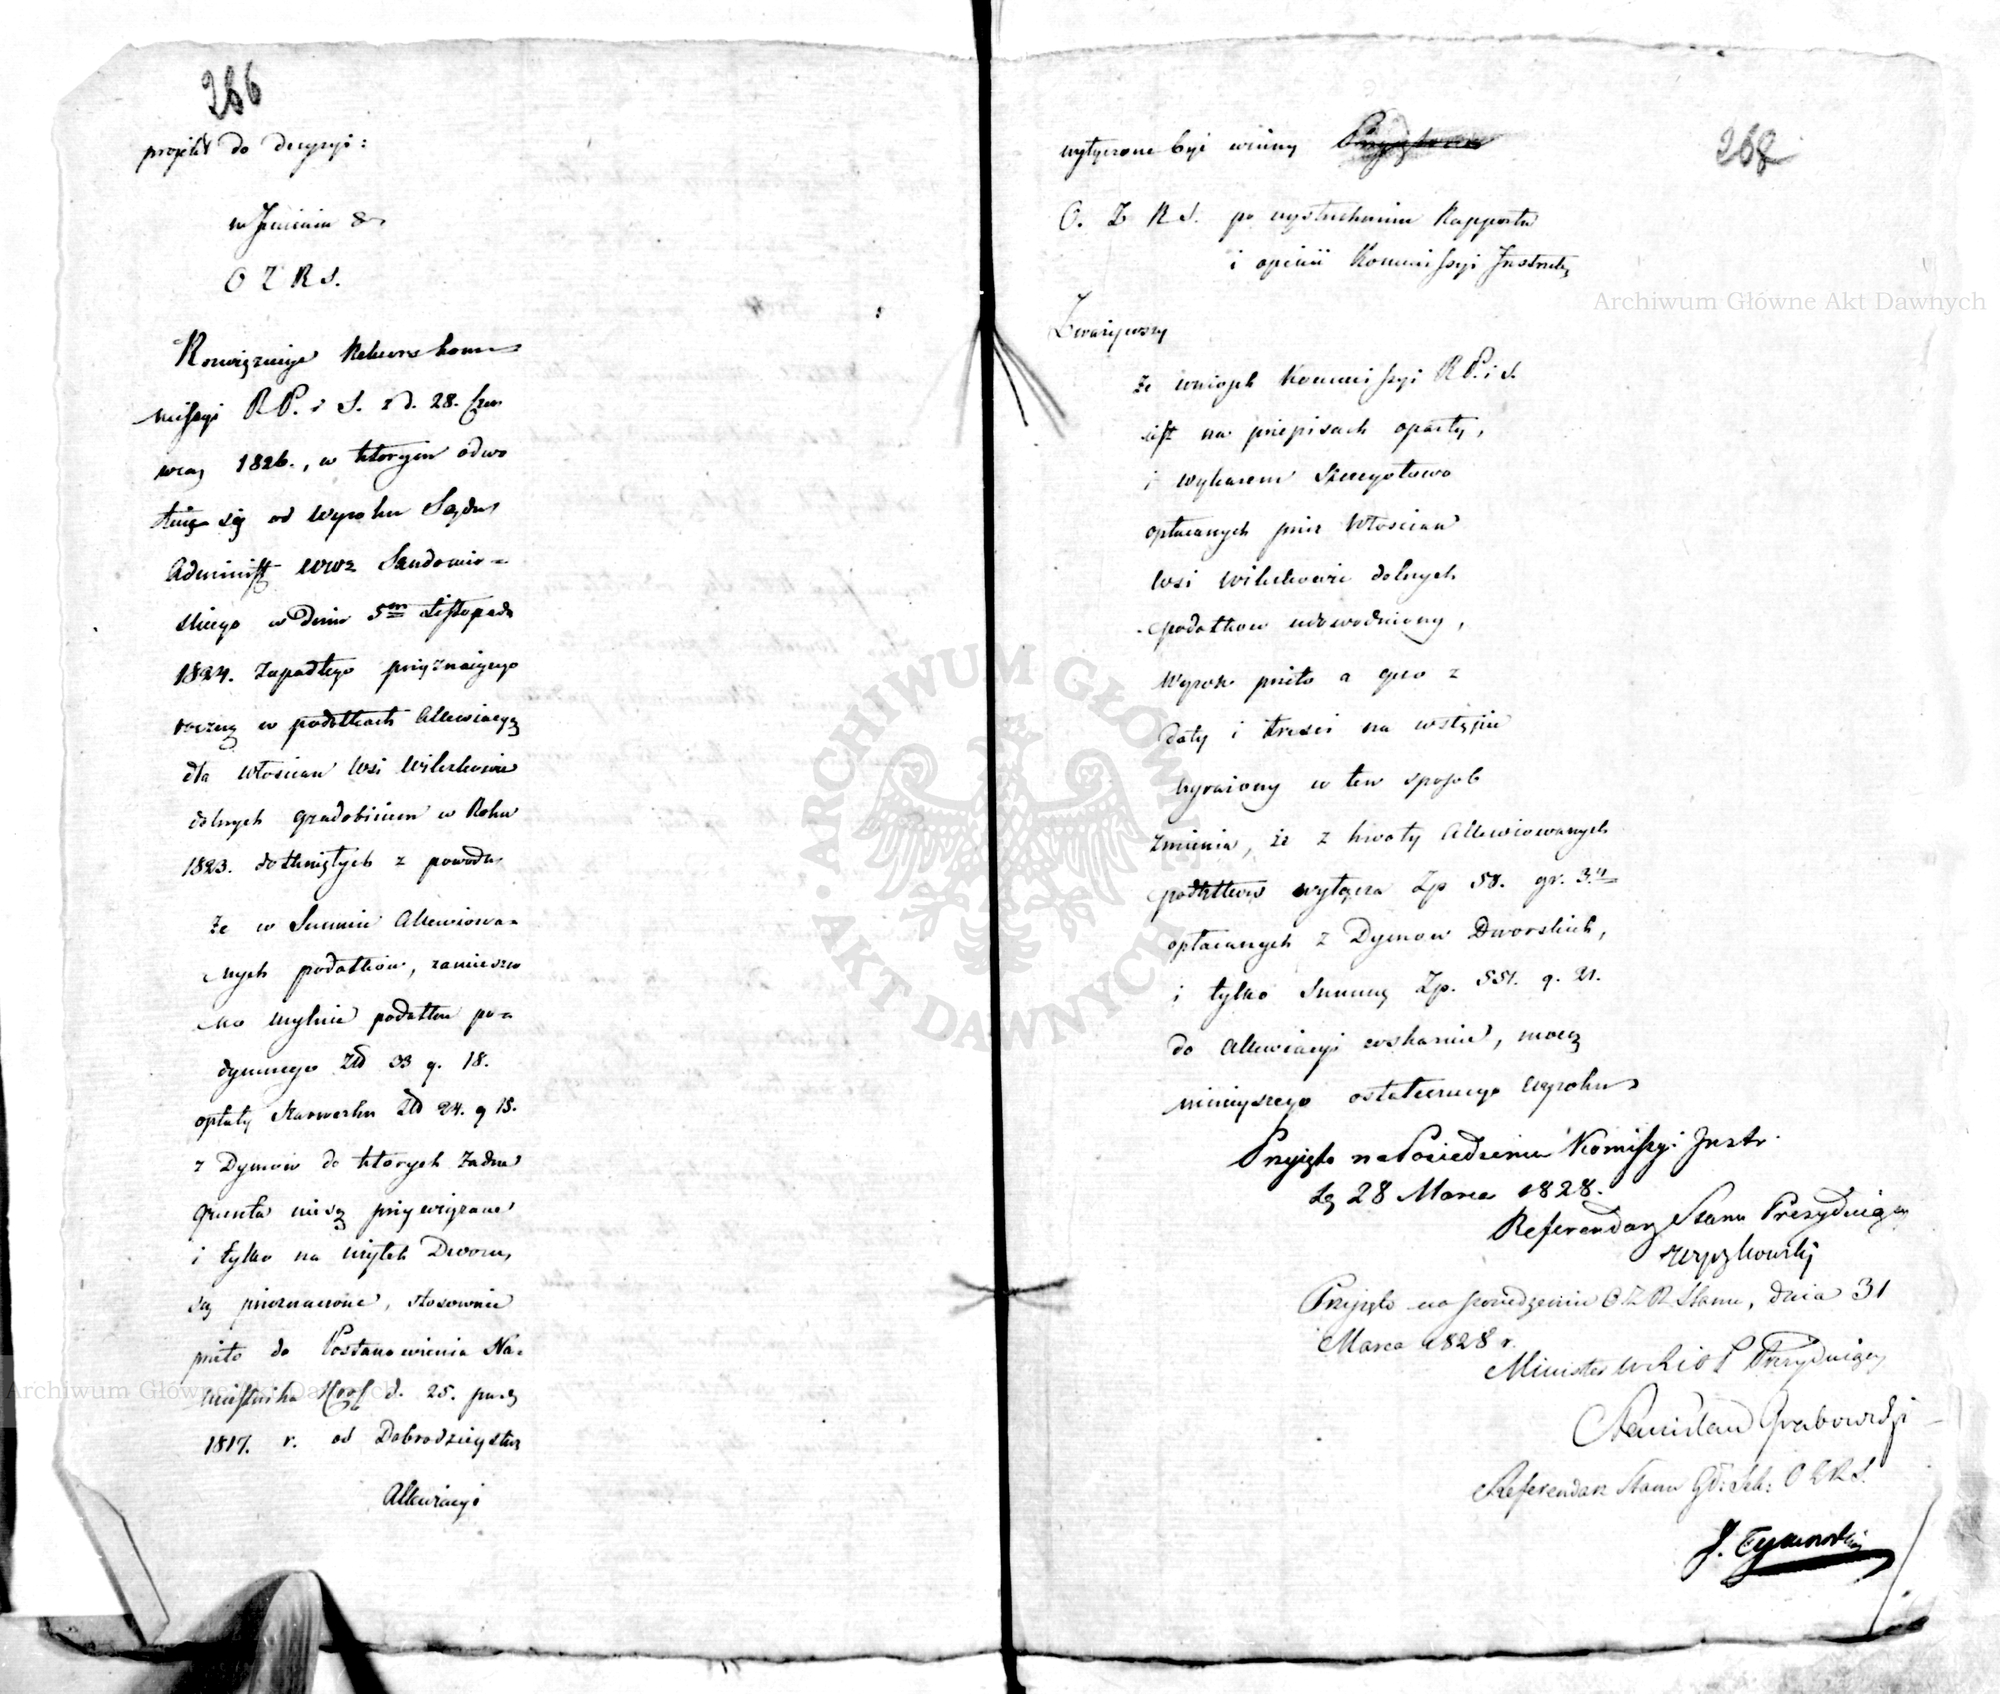 266
projekt do decyzyi:
w Imieniu &
O Z R S.
Rozwiązuje Rekurs kom=
missyi R P. i S. z d. 28. Czer
wca 1826., w ktorym odwo
łuię się od Wyroku Sądu
Administ Wwa Sandomir=
skiego w Dniu 5m Listopada
1824. zapadłego przyznaiącego
w podatkach Allewiacyą
dla włoscian Wsi Wilczkowic
dolnych gradobiciem w Roku
1823. dotkniętych z powodu
że w Summie Allewiowa=
nych podatków, zamieszczo
no mylnie podatku po=
dymnego Złł 33 g. 18.
opłaty Szarwarku Złł 24. g 15.
z Dymów do ktorych żadne
grunta niesą przywiązane
i tylko na użytek Dworu
są przeznaczone, stosownie
przeto do Postanowienia Na=
miestnika d. 25.
1817. r. od Dobrodzieystw
Allewiacyi
268
wyłączone być winny
O. Z R S. po wysłuchaniu Rapportu
i opinii Kommissyi Instrukc
Zważywszy
że wniosek Kommissyi R P. i S.
iest na przepisach oparty,
i wykazem szczegołowo
opłacanych przez Włoscian
wsi Wilczkowic dolnych
podatkow udowodniony,
Wyrok przeto a quo z
daty i tresci na wstępie
wyrażony w ten sposob
zmienia, że z kwoty Allewiowanych
podatkow wyłącza Zp 58. gr. 3.
opłacanych z Dymow Dworskich,
i tylko Summę Zp. 551. g. 21.
do Allewiacyi wskazuie, mocą
ninieyszego ostatecznego wyroku
Przyięto na Posiedzeniu Komissyi Instr.
Dą 28 Marca 1828.
Referendarz Stanu Prezyduiący
Przyięto na posiedzeniu O Z R Stanu, dnia 31
Marca 1828 r.
Minister W R i O P Prezyduiący
Stanisław Grabowski
Referendarz Stanu O Z R S.
J. Tymowski
Archiwum Główne Akt Dawnych
Archiwum Główne Akt Dawnych
ARCHIWUM GŁÓWNE AKT DAWNYCH